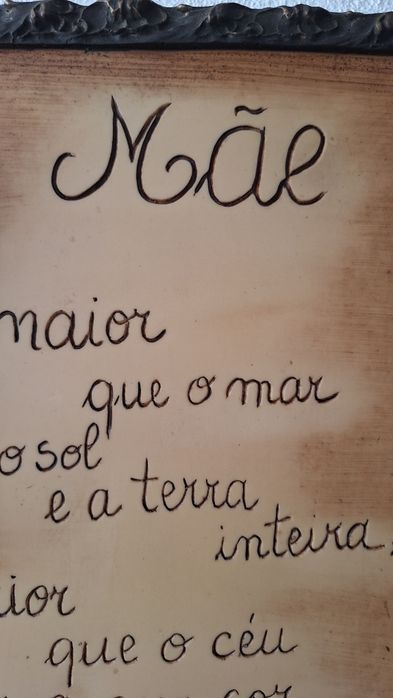 Mãe
maior
que o mar
o sol
e a terra
inteira,
que o céu